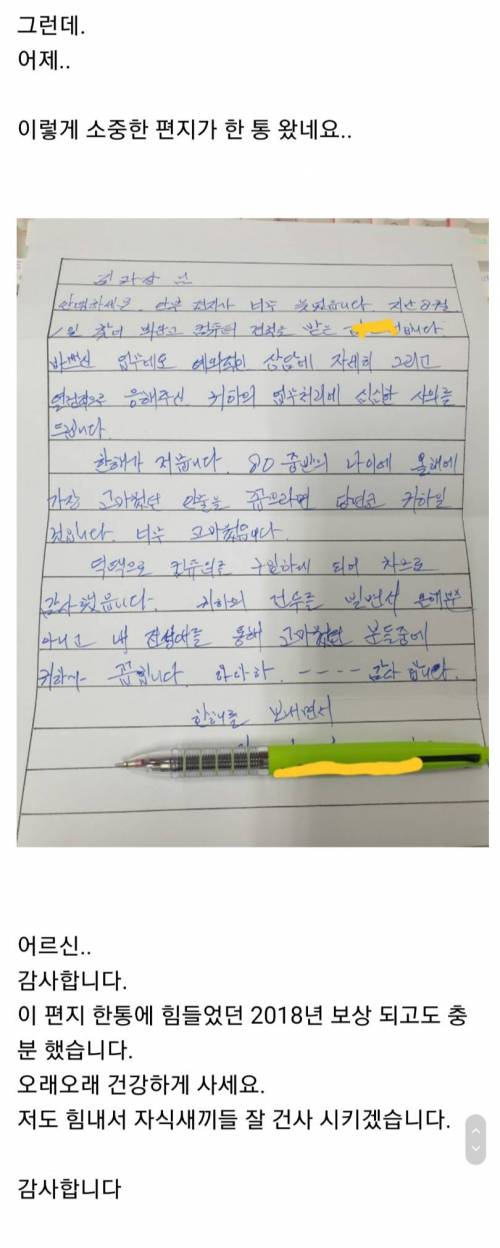 그런데.
어제..
이렇게 소중한 편지가 한 통 왔네요..
정과장 님
안녕하세요. 안부 전치사 너무 늦었습니다 지난 8월
1일 찾아 뵈었고 컴퓨터 견적을 받은 입니다
바쁘신 업무에도 예외적인 상담에 자세히 그리고
열정적으로 응해주신 귀하의 업무처리에 심심한 사의를
드립니다
한해가 저뭅니다. 80 중반의 나이에 올해에
가장 고마웠던 인물을 꼽으라면 당연코 귀하일
것입니다. 너무 고마웠습니다.
역택으로 컴퓨터를 구입하게 되어 차으로
감사했습니다. 귀하의 건승을 빌면서 올해뿐
아니고 내 전생애를 통해 고마웠던 분들중에
귀하가 꼽힙니다. 와아하. ---- 감다 합니다.
한해를 보내면서
어르신..
감사합니다.
이 편지 한통에 힘들었던 2018년 보상 되고도 충
분 했습니다.
오래오래 건강하게 사세요.
저도 힘내서 자식새끼들 잘 건사 시키겠습니다.
감사합니다